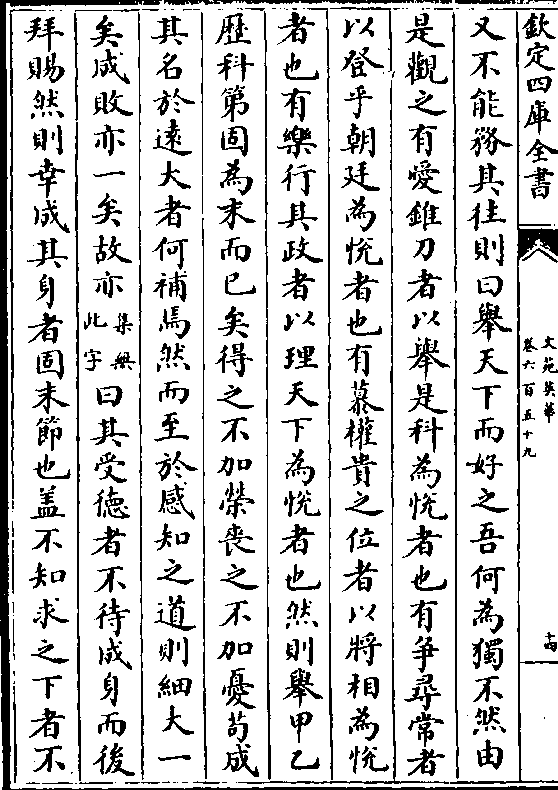 欽定四庫全書
文苑英華
卷六百五十九
十四
又不能務其往則曰舉天下而好之吾何為獨不然由
是觀之有愛錐刀者以舉是科為悅者也有爭尋常者
以登乎朝廷為悅者也有慕權貴之位者以將相為悅
者也有樂行其政者以理天下為悅者也然則舉甲乙
歷科第固為末而已矣得之不加榮喪之不加憂茍成
其名於遠大者何補焉然而至於感知之道則細大一
矣成敗亦一矣故亦集無此字曰其受德者不待成身而後
拜賜然則幸成其身者固末節也盖不知求之下者不